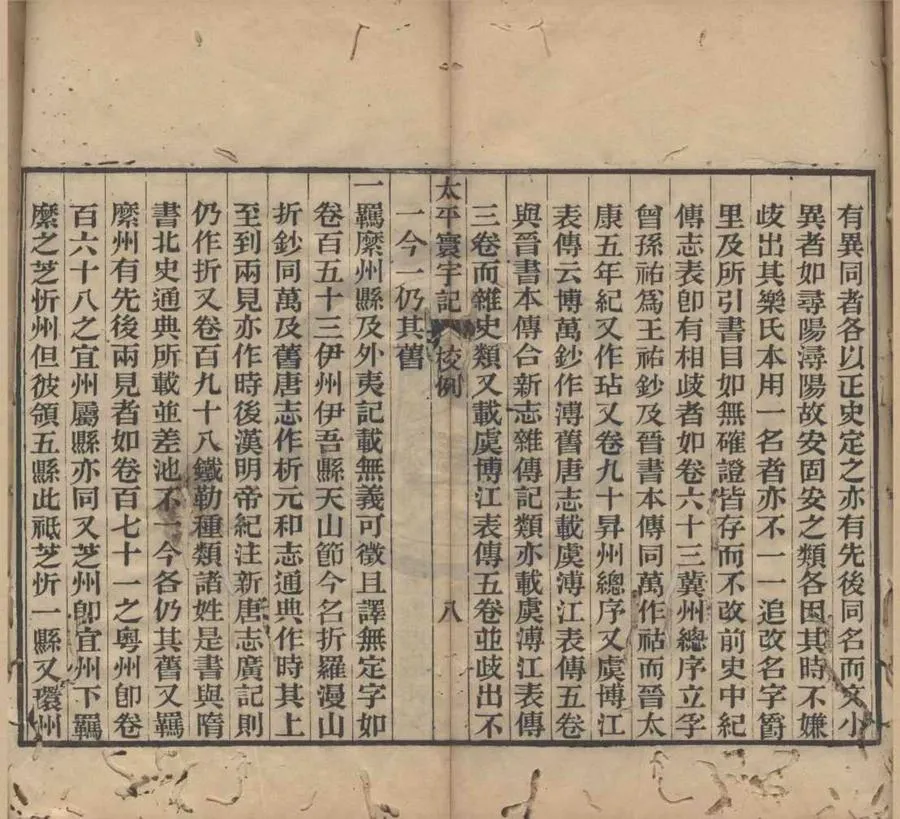 有異同者各以正史定之亦有先後同名而文小
異者如尋陽潯陽故安固安之類各因其時不嫌
歧出其樂氏本用一名者亦不一一追改名字爵
里及所引書目如無確證皆存而不改前史中紀
傳志表卽有相歧者如卷六十三冀州總序立孚
曾孫祐爲王祐鈔及晉書本傳同萬作祜而晉太
康五年紀又作玷又卷九十昇州總序又虞博江
表傳云博萬鈔作溥舊唐志載虞溥江表傳五卷
與晉書本傳合新志雜傳記類亦載虞溥江表傳
三卷而雜史類又載虞博江表傳五卷並歧出不
太平寰宇記 校例 八
一今一仍其舊
一羈縻州縣及外夷記載無義可徵且譯無定字如
卷百五十三伊州伊吾縣天山節今名折羅漫山
折鈔同萬及舊唐志作析元和志通典作時其上
至到兩見亦作時後漢明帝紀注新唐志廣記則
仍作折又卷百九十八鐵勒種類諸姓是書與隋
書北史通典所載並差池不一今各仍其舊又羈
縻州有先後兩見者如卷百七十一之粵州卽卷
百六十八之宜州屬縣亦同又芝州卽宜州下羈
縻之芝忻州但彼領五縣此祗芝忻一縣又瓌州